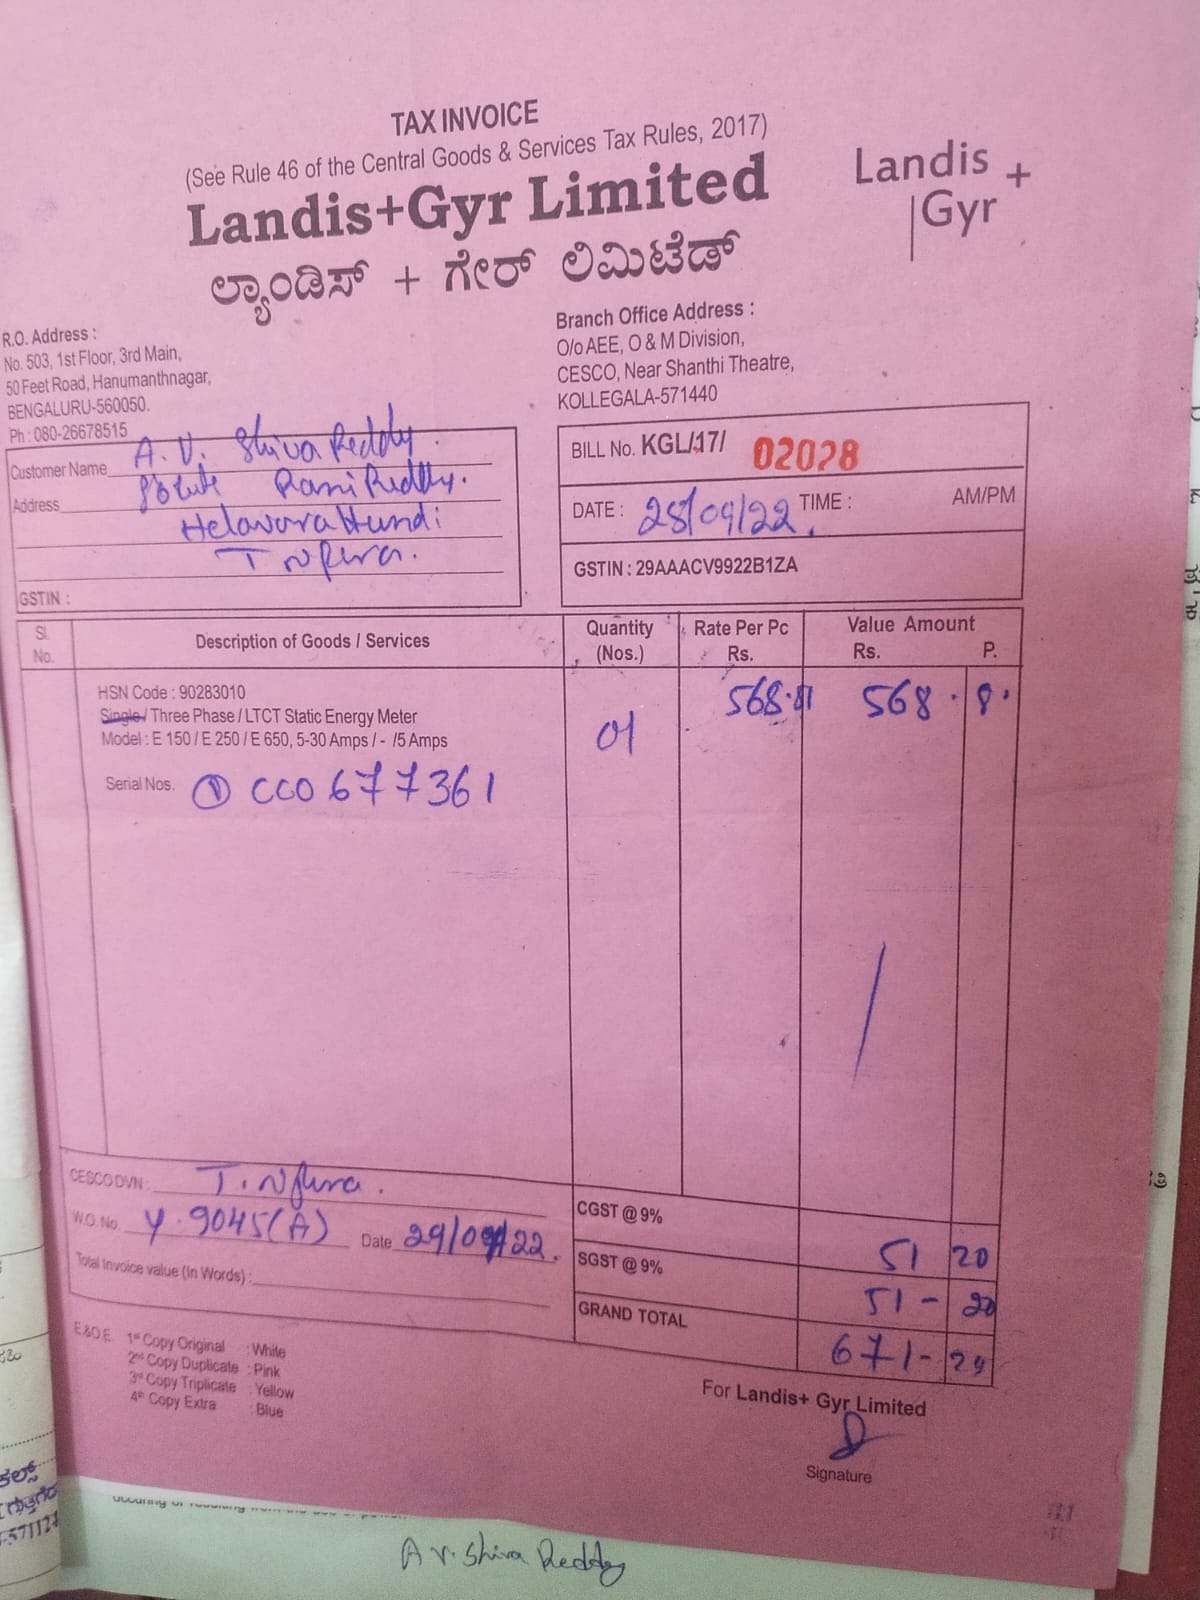 TAX INVOICE
(See Rule 46 of the Central Goods & Services Tax Rules, 2017)
Landis+Gyr Limited
ಲ್ಯಾಂಡಿಸ್ + ಗೇರ್ ಲಿಮಿಟೆಡ್
Landis +
Gyr
R.O. Address :
No. 503, 1st Floor, 3rd Main,
50 Feet Road, Hanumanthnagar,
BENGALURU-560050.
Ph : 080-26678515
Branch Office Address :
O/o AEE, O & M Division,
CESCO, Near Shanthi Theatre,
KOLLEGALA-571440
Customer Name A.V. Shiva Reddy.
Address Rami Reddy.
Helavara Hundi
GSTIN :
BILL No. KGL/17/ 02028
DATE : 28/09/22. TIME : AM/PM
GSTIN : 29AAACV9922B1ZA
Sl. No. Description of Goods / Services Quantity (Nos.) Rate Per Pc Rs. Value Amount Rs. P.
HSN Code : 90283010
Single / Three Phase / LTCT Static Energy Meter
Model : E 150 / E 250 / E 650, 5-30 Amps / - /5 Amps
01 568.81 568. 8.
Serial Nos. ① CC0677361
CESCO DVN :
W.O. No. Y.9045(A) Date 29/09/22.
Total Invoice value (In Words) :
CGST @ 9% 51 20
SGST @ 9% 51 - 20
GRAND TOTAL 671-
E&O.E.
1st Copy Original : White
2nd Copy Duplicate : Pink
3rd Copy Triplicate : Yellow
4th Copy Extra : Blue
For Landis+ Gyr Limited
Signature
A V. Shiva Reddy